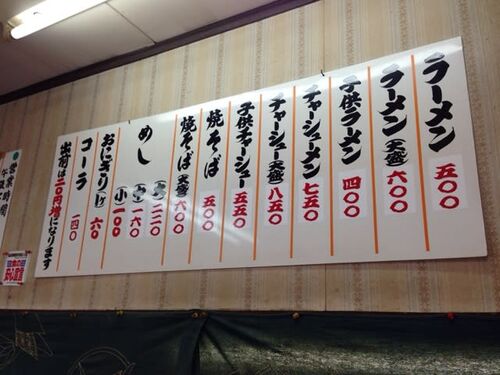 ラーメン 五〇〇
ラーメン(大盛) 六〇〇
子供ラーメン 四〇〇
チャーシューメン 七五〇
チャーシュー(大盛) 八五〇
子供チャーシュー 五五〇
焼そば 五〇〇
焼そば(大盛) 六〇〇
めし (大) 二二〇
(中) 一六〇
(小) 一〇〇
おにぎり(1ヶ) 六〇
コーラ 一四〇
出前は二〇円増になります
営業時間